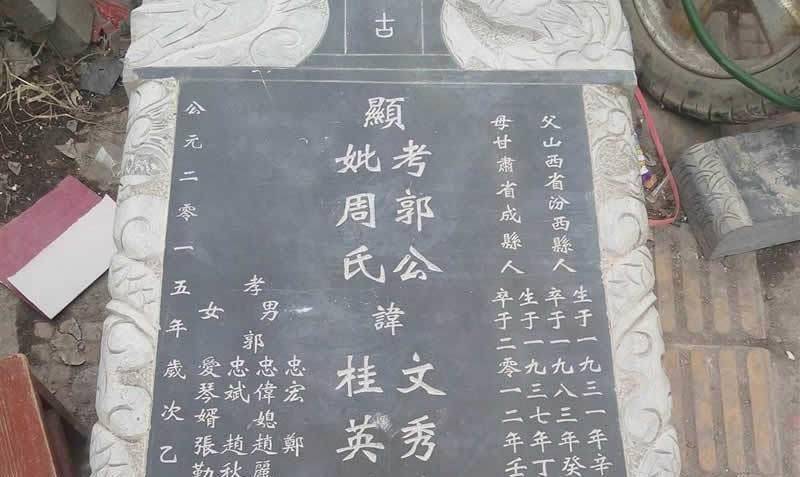 古
父山西省汾西縣人
生于一九三一年辛
卒于一九八三年癸
母甘肅省成縣人
生于一九三七年丁
卒于二零一二年壬
顯
考郭公
妣周氏
諱
文秀
桂英
孝男郭
忠宏 鄭
忠偉媳趙麗
忠斌 趙秋
女 愛琴婿張勤
公元二零一五年歲次乙